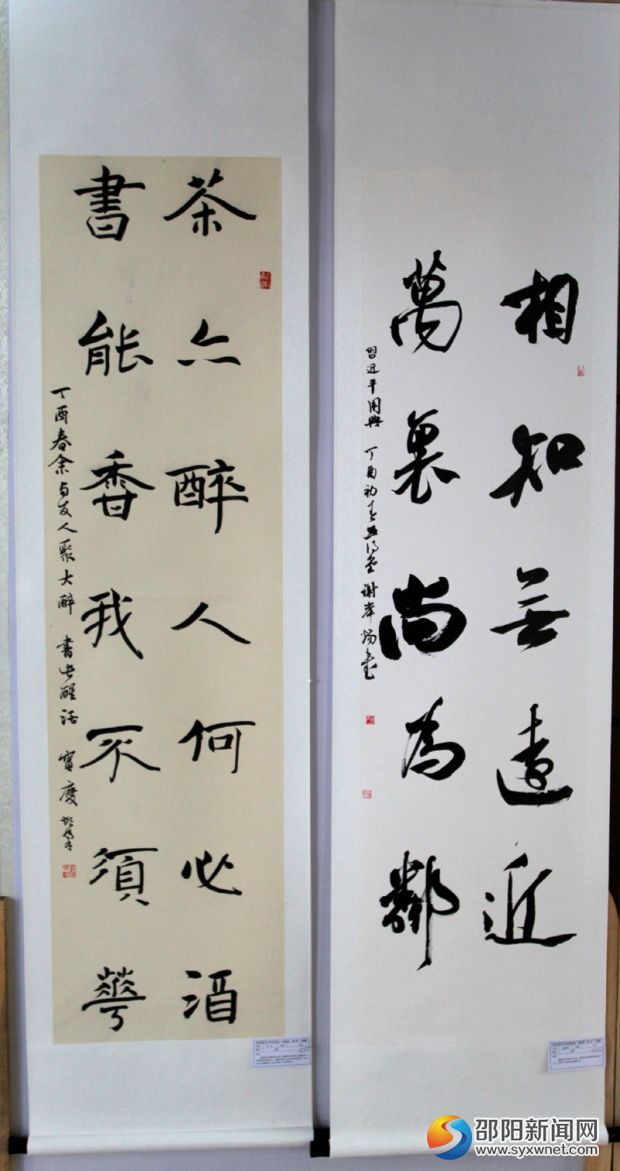 相知無遠近
萬裏尚為鄰
習近平用典 丁酉初春
茶亦醉人何必酒
書能香我不須華
丁酉春余与友人聚大醉 書此醒话 寳慶
邵阳新闻网
www.syxwnet.com